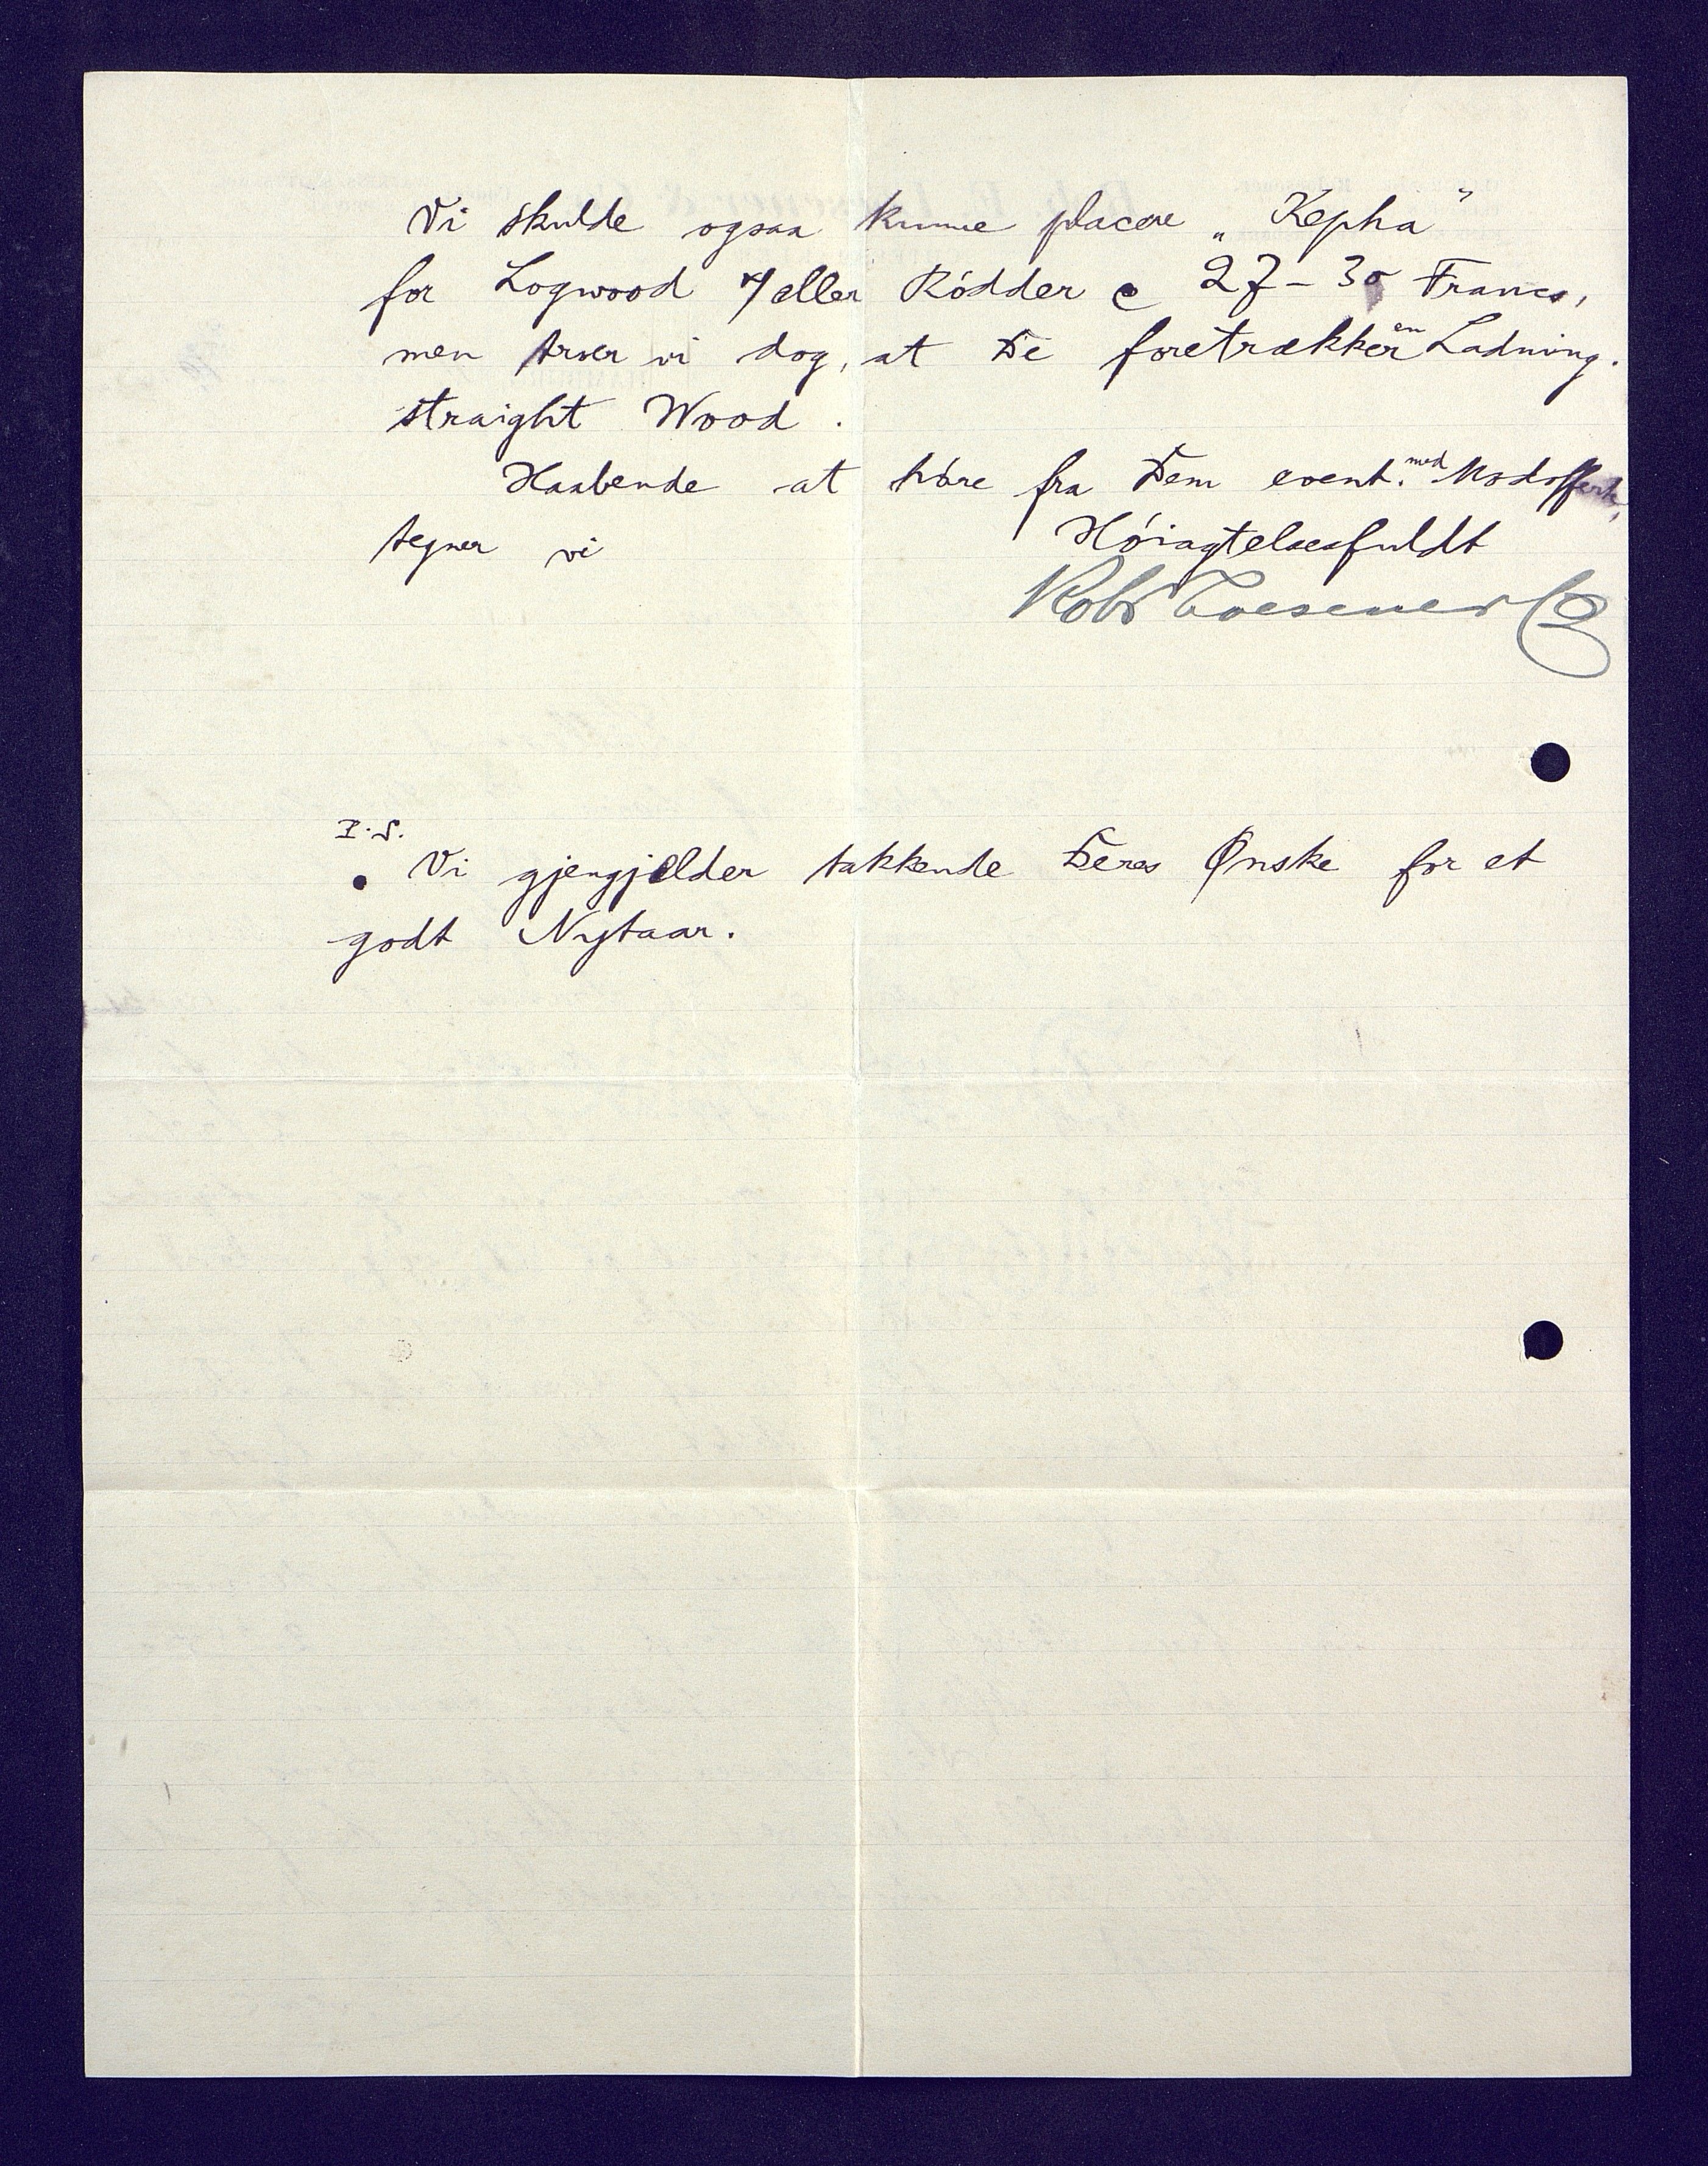 Vi skulde ogsaa kunne placere „Kepha"
for Logwood &/eller Rödder c 27-30 Francs,
men troer vi dog, at De foretrækker en Ladning
straight Wood.
Haabende at höre fra Dem event. med Modofferte,
tegner vi
Höiagtelsesfuldt
Rob Loesener Co
P.S.
Vi gjengjælder takkende Deres Ønske for et
godt Nytaar.